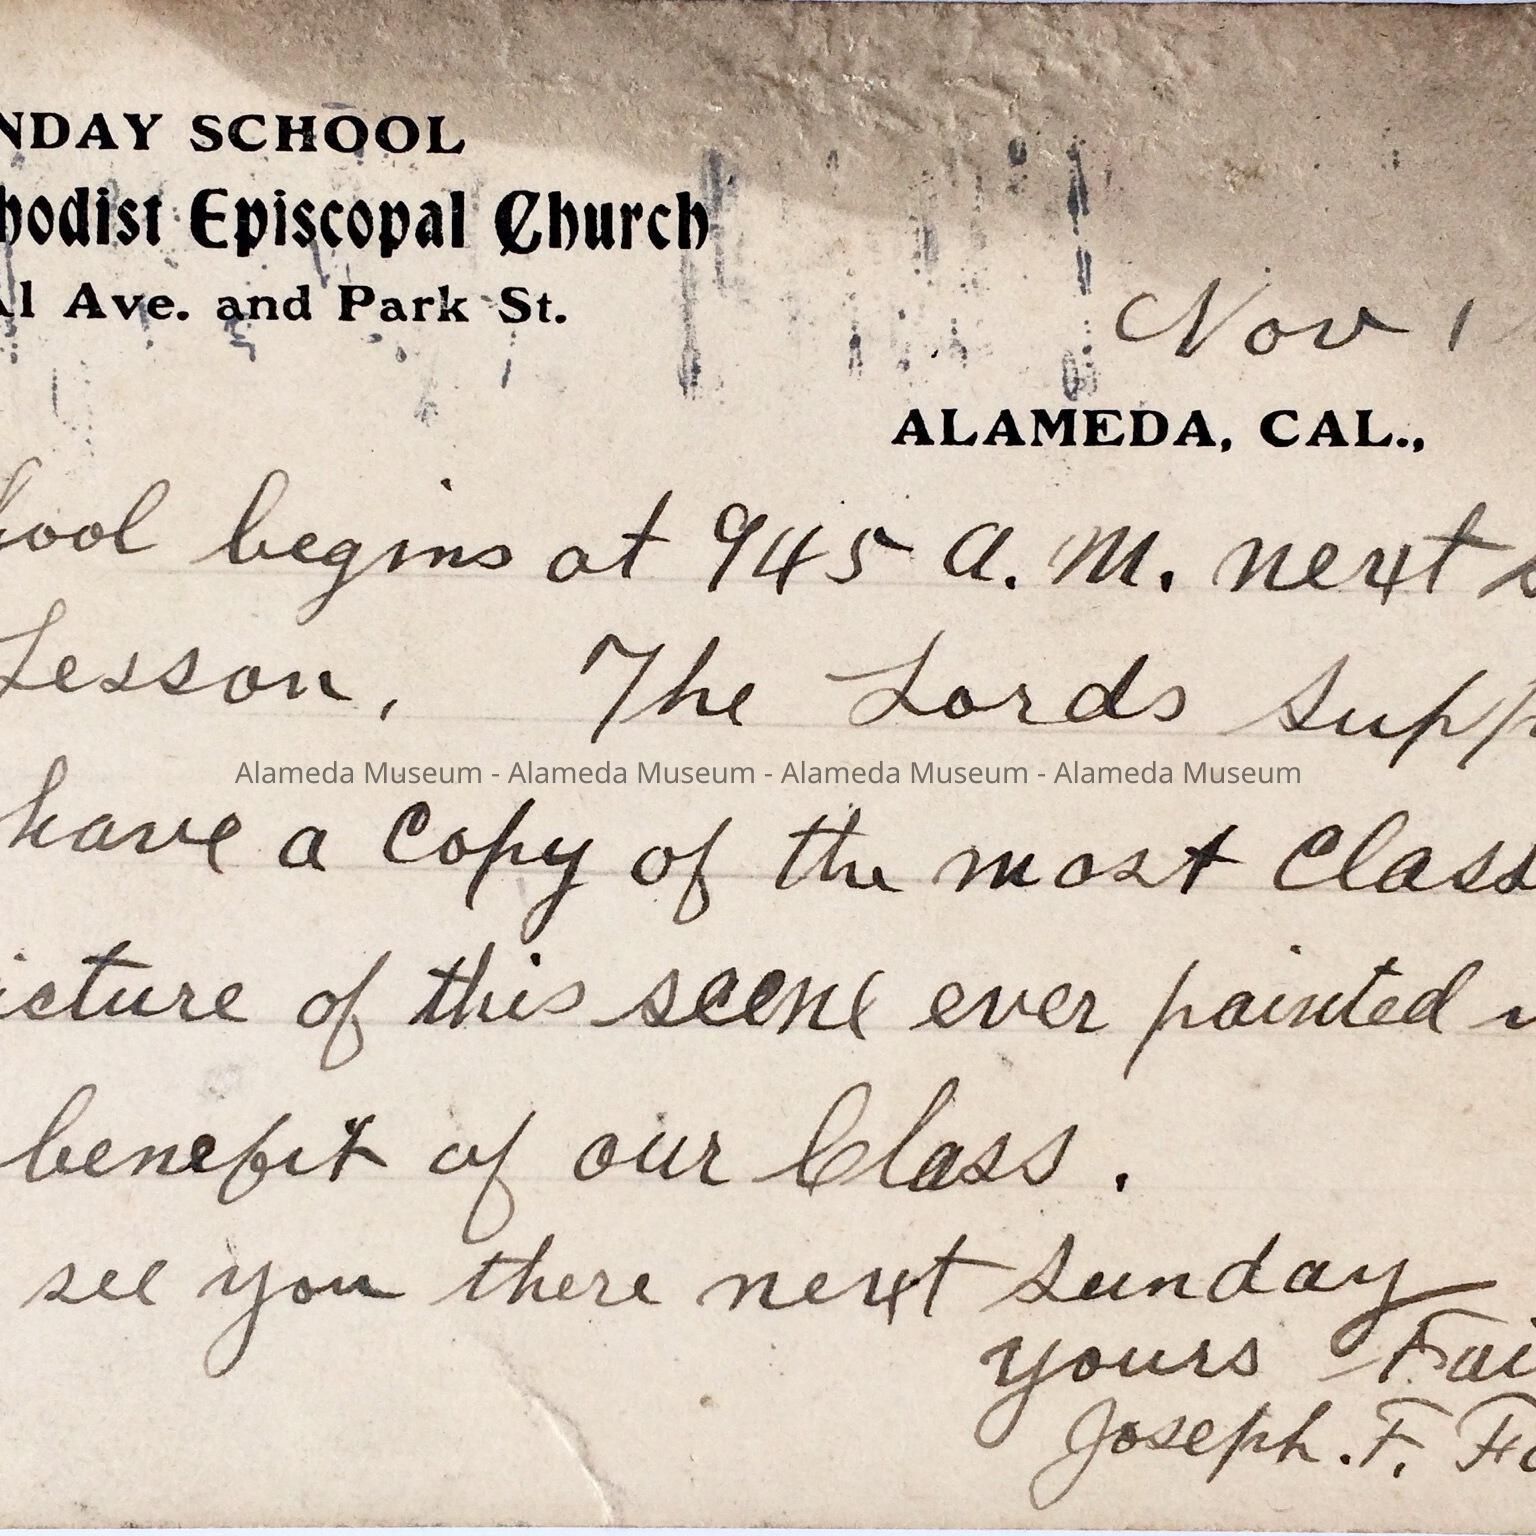 NDAY SCHOOL
hodist Episcopal Church
al Ave. and Park St.
Nov 1
ALAMEDA, CAL.,
hool begins at 945 a.m. next S
Lesson, The Lords Supp
Alameda Museum - Alameda Museum - Alameda Museum - Alameda Museum
have a Copy of the most Class
icture of this scene ever painted
benefit of our Class.
see you there next Sunday
yours Fai
Joseph. F. Fo